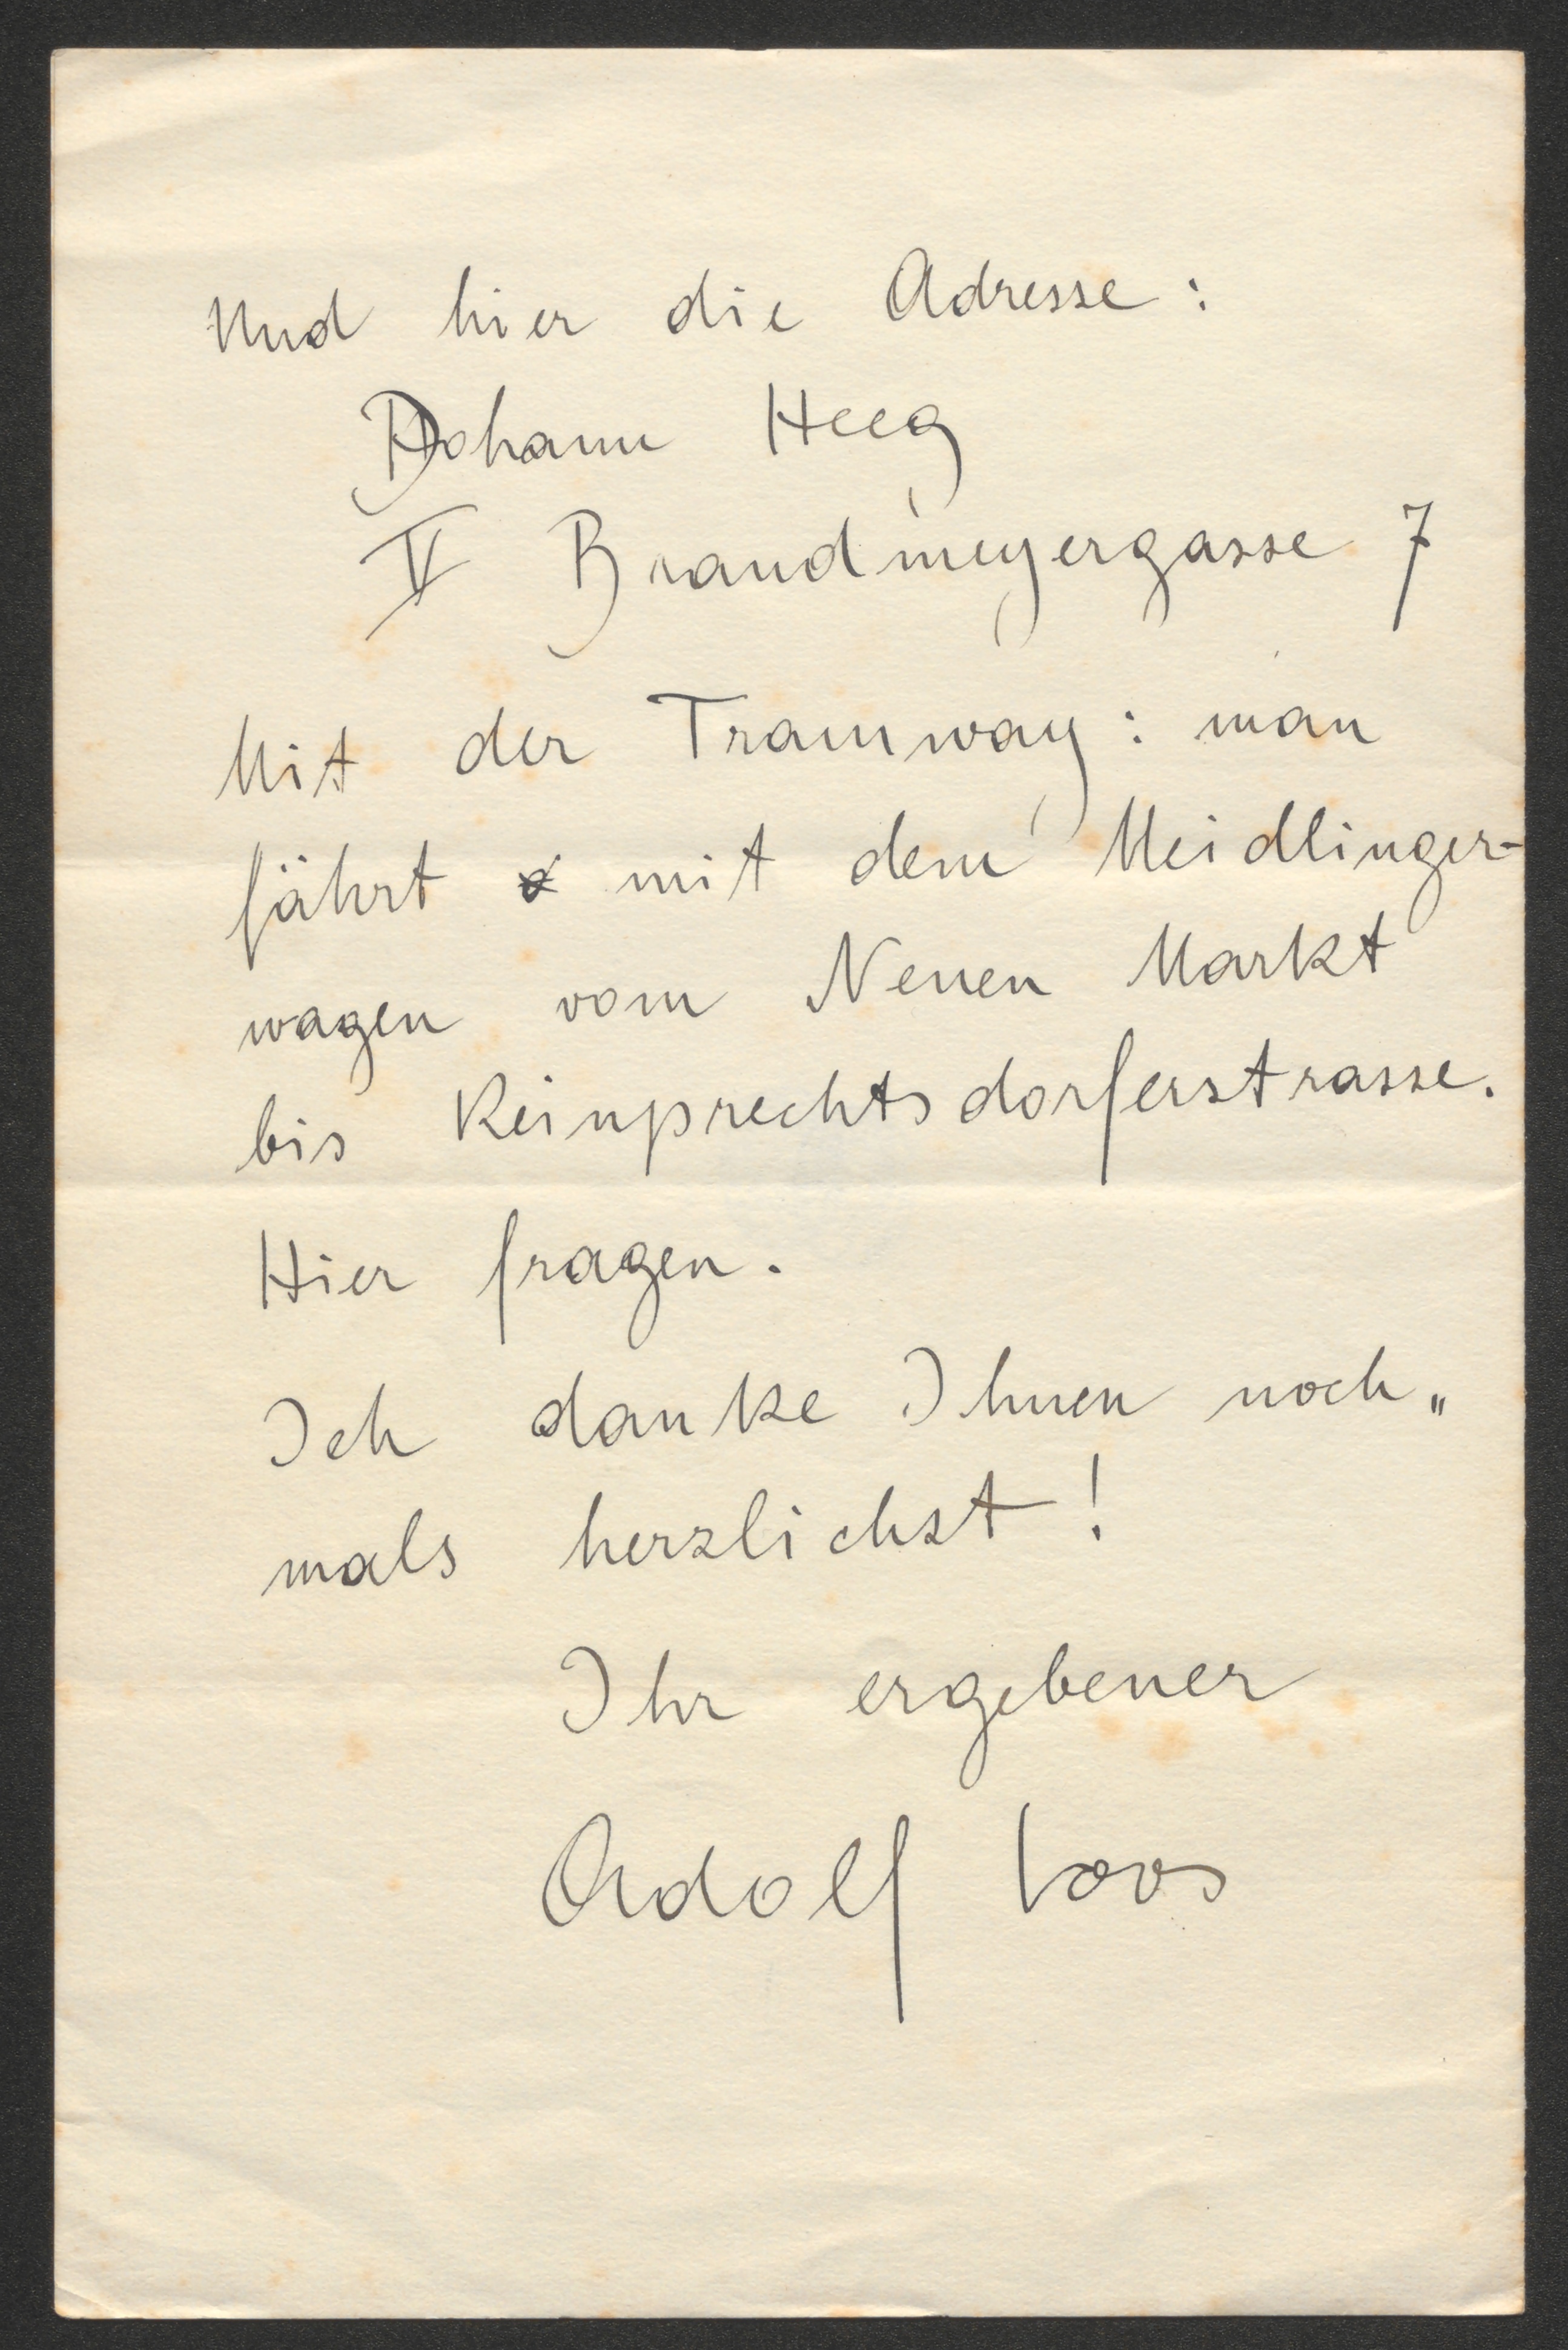 Und hier die Adresse:
Johann Heeg
V Brandmeyergasse 7
Mit der Tramway: man
fährt mit dem Meidlinger-
wagen vom Neuen Markt
bis Reinprechtsdorferstrasse.
Hier fragen.
Ich danke Ihnen noch„
mals herzlichst!
Ihr ergebener
Adolf Loos